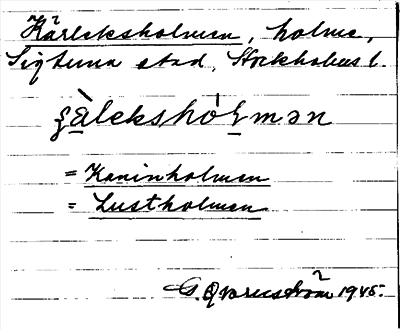 Kärleksholmen, holme,
Sigtuna stad, Stockholms l.
ʂὰlekshólmən
= Kaninholmen
= Lustholmen
G. Qvarnström 1945.